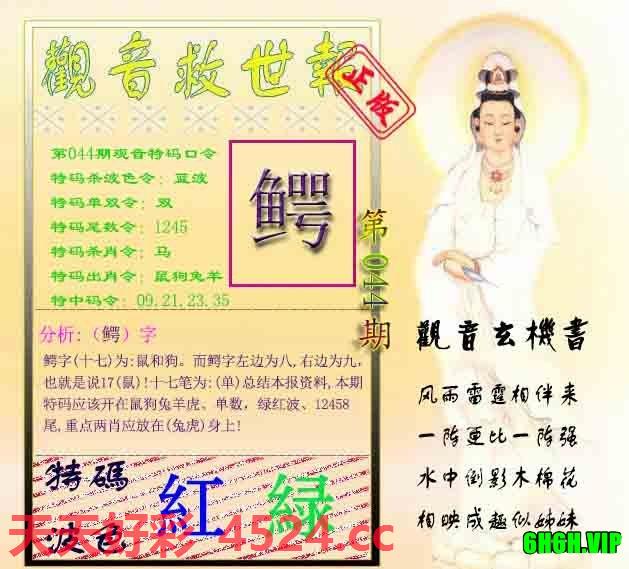 觀音救世報
正版
第044期观音特码口令
特码杀波色令：蓝波
特码单双令：双
特码尾数令：1245
特码杀肖令：马
特码出肖令：鼠狗兔羊
特中码令：09.21.23.35
鳄
第044期
分析:（鳄）字
鳄字(十七)为:鼠和狗。而鳄字左边为八,右边为九,
也就是说17(鼠)!十七笔为:(单)总结本报资料,本期
特码应该开在鼠狗兔羊虎、单数，绿红波、12458
尾,重点两肖应放在(兔虎)身上!
特碼
波色
紅 綠
天天好彩-4524.cc
觀音玄機書
风雨雷霆相伴来
一阵更比一阵强
水中倒影木棉花
相映成趣似姊妹
6H6H.VIP